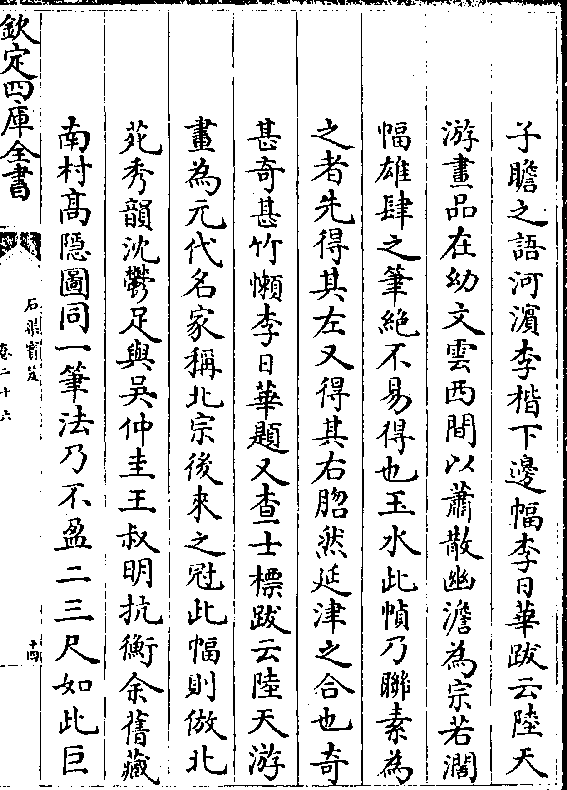 子瞻之語河濵李楷下邊幅李日華跋云陸天
游畫品在幼文雲西間以蕭散幽澹為宗若濶
幅雄肆之筆絶不易得也玉水此幀乃聨素為
之者先得其左又得其右脗然延津之合也奇
甚奇甚竹懶李日華題又查士標跋云陸天游
畫為元代名家稱北宗後來之冠此幅則倣北
苑秀韻沈鬱足與吴仲圭王叔明抗衡余舊藏
南村高隠圖同一筆法乃不盈二三尺如此巨
欽定四庫全書
石渠寳笈
卷二十六
十四